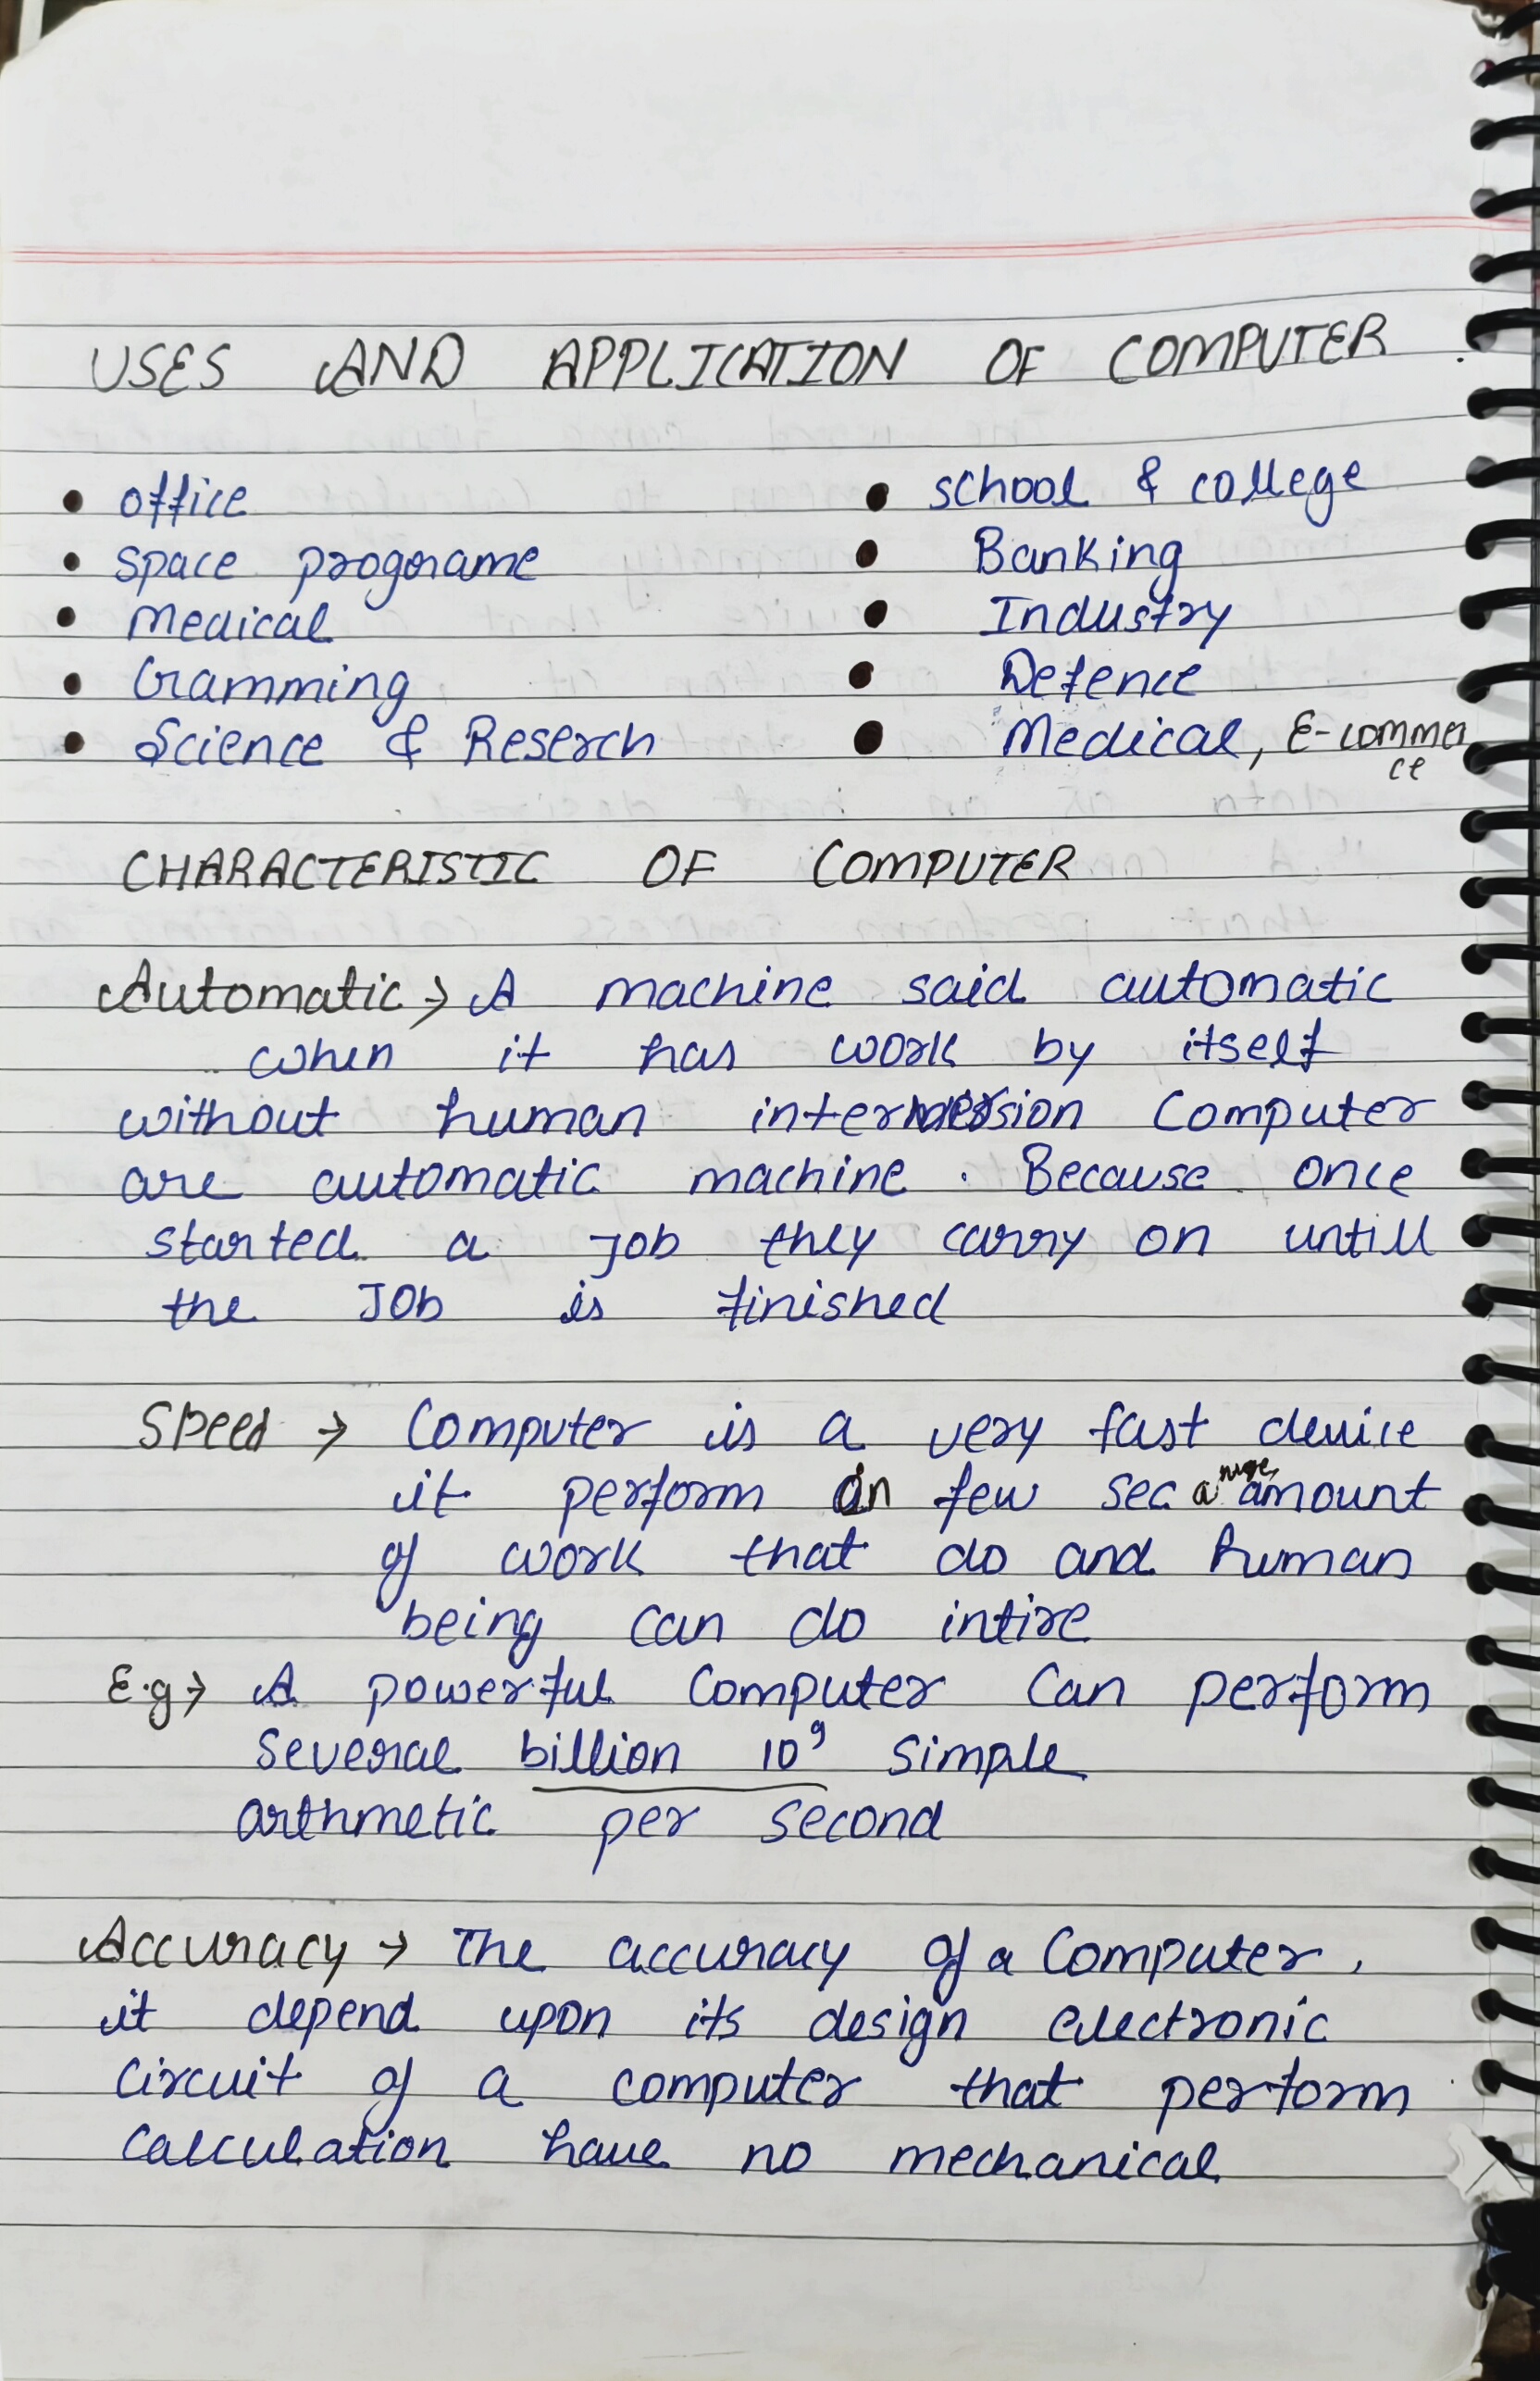 USES AND APPLICATION OF COMPUTER.
• office • school & college
• space programe • Banking
• Medical • Industry
• Gramming • Defence
• Science & Reserch • Medical, E-commer
ce
CHARACTERISTIC OF COMPUTER
Automatic → A machine said automatic
when it has work by itself
without human Computer
are automatic machine. Because once
started a job they carry on untill
the JOb is finished
Speed → Computer is a very fast device
it perform in few sec a huge amount
of work that do and human
being can do intire
E.g → A powerful Computer Can perform
several billion 10⁹ simple
arthmetic per second
Accuracy → The accuracy of a Computer.
it depend upon its design electronic
circuit of a computer that perform
calculation have no mechanical